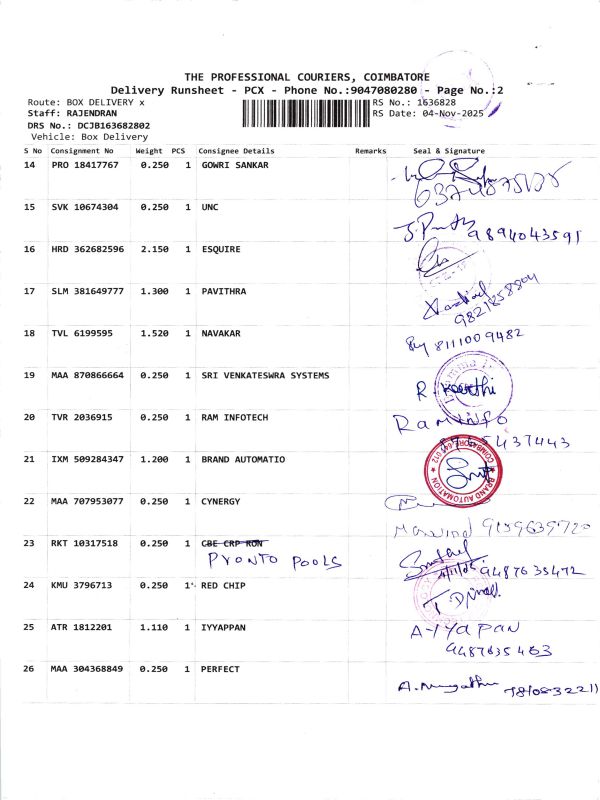 THE PROFESSIONAL COURIERS, COIMBATORE
Delivery Runsheet - PCX - Phone No.:9047080280 - Page No.:2
Route: BOX DELIVERY x RS No.: 1636828
Staff: RAJENDRAN RS Date: 04-Nov-2025
DRS No.: DCJB163682802
Vehicle: Box Delivery
S No Consignment No Weight PCS Consignee Details Remarks Seal & Signature
14 PRO 18417767 0.250 1 GOWRI SANKAR
15 SVK 10674304 0.250 1 UNC
9894043591
16 HRD 362682596 2.150 1 ESQUIRE
17 SLM 381649777 1.300 1 PAVITHRA
9821858804
18 TVL 6199595 1.520 1 NAVAKAR
8111009482
19 MAA 870866664 0.250 1 SRI VENKATESWRA SYSTEMS
R. Keerthi
20 TVR 2036915 0.250 1 RAM INFOTECH
RAM INFO
5437443
21 IXM 509284347 1.200 1 BRAND AUTOMATIO
BRAND AUTOMATION
22 MAA 707953077 0.250 1 CYNERGY
9159639720
23 RKT 10317518 0.250 1 CBE CRP RON
PRONTO POOLS
9487635472
24 KMU 3796713 0.250 1 RED CHIP
25 ATR 1812201 1.110 1 IYYAPPAN
A-IYAPAN
9487635463
26 MAA 304368849 0.250 1 PERFECT
7810832211